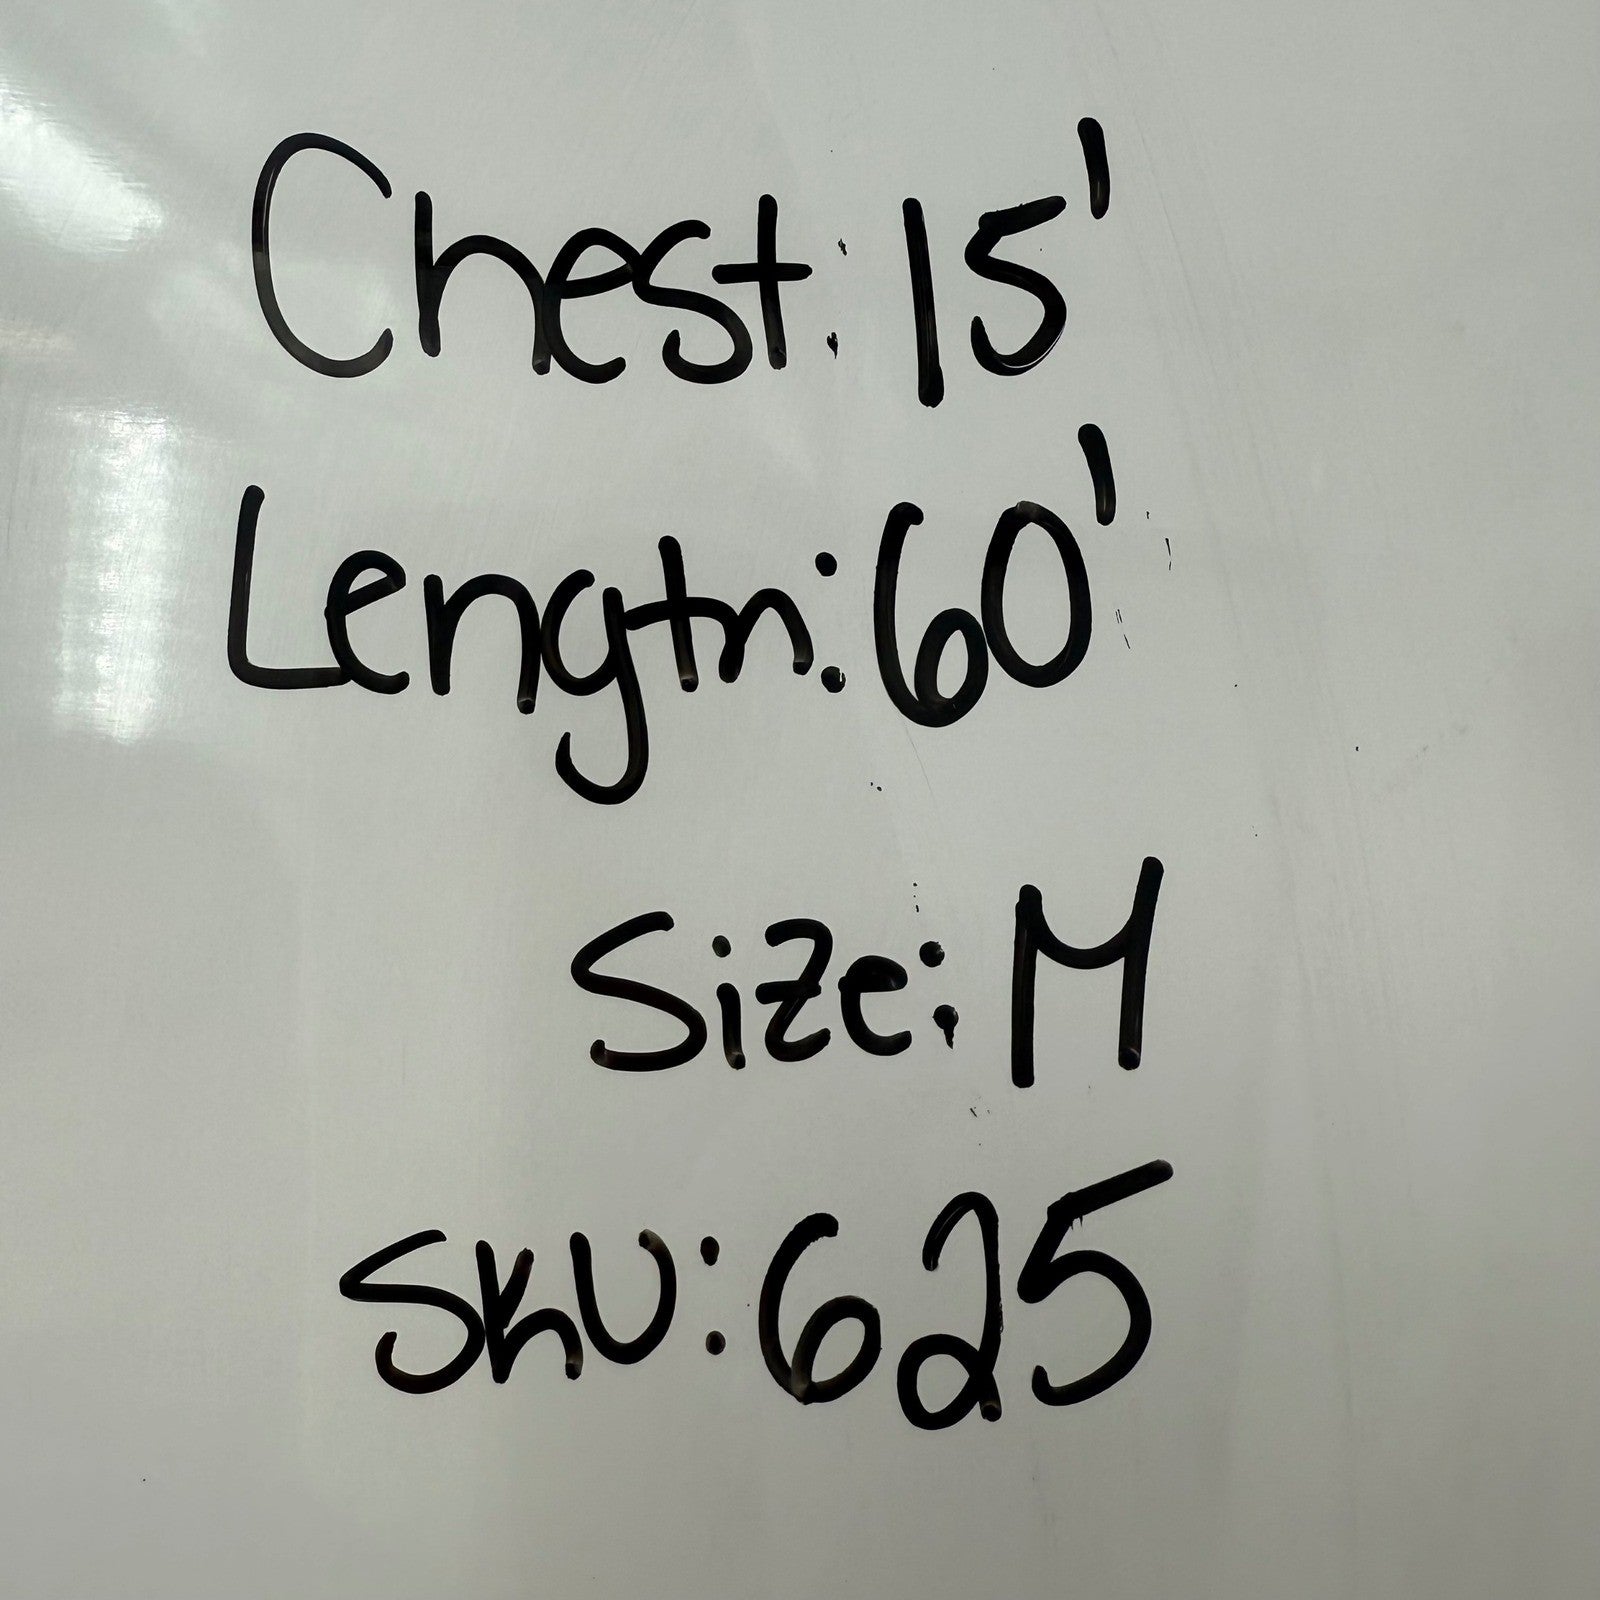 Chest: 15'
Length: 60'
Size: M
SKU: 625